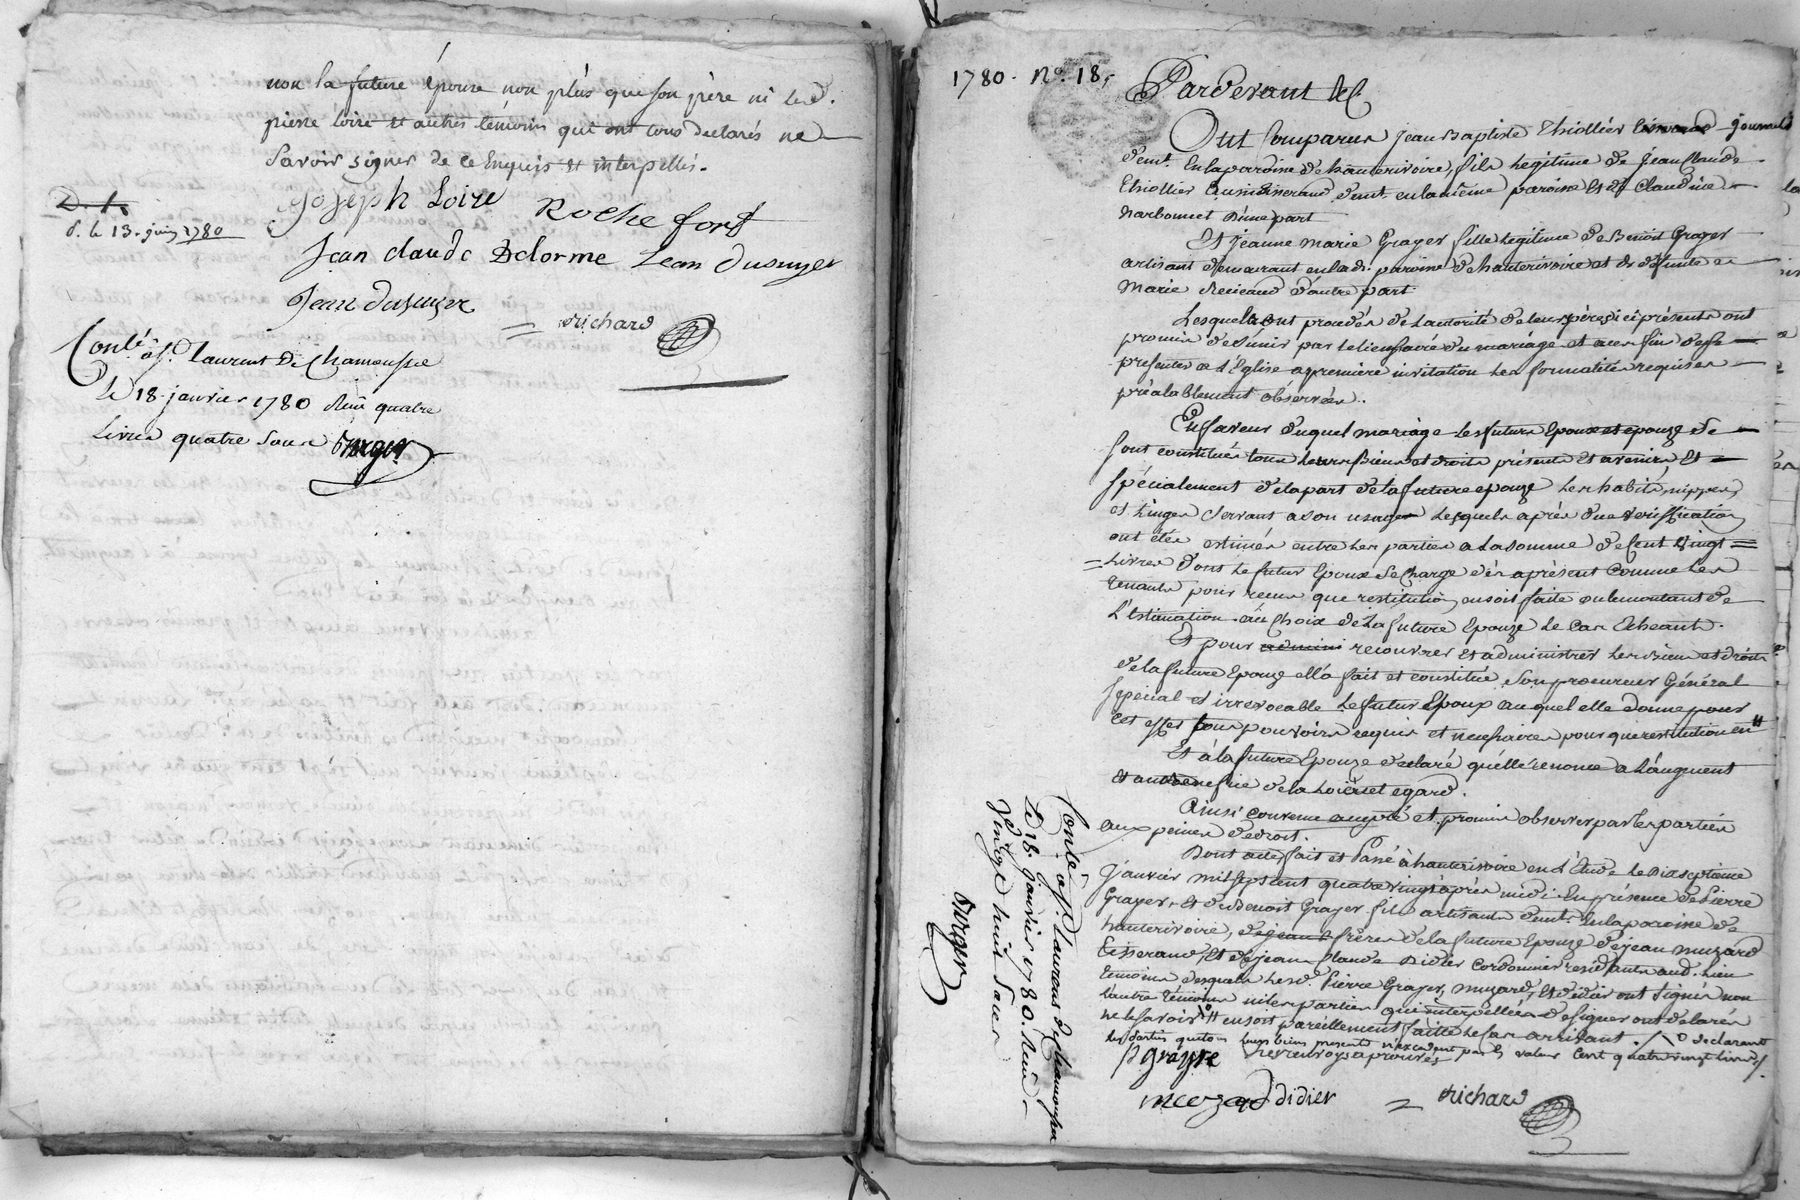 non la future épouse non plus que son père ni led.
pierre loire et autres témoins qui ont tous déclarés ne
savoir signer de ce Enquis et interpellés.
Joseph Loire Rochefort
Jean claude Delorme Jean Dusuyer
Jean dusuyer
richard
d. le 13. juin 1780
Conlé. à St. Laurent De Chamousset
Le 18 janvier 1780 Reçu quatre
Livres quatre sous
1780. No. 18.
Pardevant &c
Ont Comparus Jean Baptiste Thiollier journalier
demt. En la paroisse d'hauterivoire, fils Legitime de Jean Claude
Thiollier aussi tisserand demt. en la même paroisse Et de Claudine
Narbonnet D'une part
Et Jeanne Marie Grayer fille Legitime de Benoit Grayer
artisant demeurant en lad. paroisse d'hauterivoire et de défunte
Marie D'autre part
Lesquels ont procédés de L'autorité de leurs pères ici présents ont
promis de s'unir par le lien sacré du mariage et a ces fin de se
présenter a L'Eglise a première invitation Les formalités requises
préalablement observées.
En faveur duquel mariage Les futurs Epoux et epouze se
sont constitués tous Leurs Biens et droits présents Et avenirs Et
spécialement de la part de la future epouze Les habits, nippes,
et Linges servant a son usage Lesquels après due vérification
ont étés estimés entre Les parties a La somme de Cent Vingt
Livres dont Le futur Epoux se Charge dès aprésent Comme Les
tenants pour reçus que restitution en soit faite ou le montant de
L'Estimation au Choix de La future Epouze Le Cas Echeant.
Et pour admini recouvrer Et administrer Les Biens et droits
de la future Epouze ella fait et constitué Son procureur Général
spécial et irrevocable Le futur Epoux au quel elle donne pour
Ces effet tous pouvoirs requis et necessaires pour que restitution en #
Et a la future Epouze declaré qu'elle renonce a L'augment
Et au benefice de la Loi à cet egard.
Ainsi convenu accepté et promis observer par les parties
aux peines de droit.
Dont acte, fait et Passé à hauterivoire en L'Etude le dixseptieme
Janvier mil sept cent quatre vingt après midi En présence de Pierre
Grayer, Et de Benoit Grayer fils artisants demts. En la paroisse de
hauterivoire, de jean frères de la future Epouze, de jean muzard
tisserand, Et de jean Claude Didier Cordonnier residants aud. Lieu
témoins desquels Lesd. Pierre Grayer, muzard, Et didier ont signés non
l'autre témoins ni les parties qui interpellées de signer ont déclarés
ne le savoir # en soit pareillement faite Le Cas arrivant. declarant
les parties que tous leurs biens presents n'excedent pas la valeur Cent quatre vingt livres.
renvoys aprouvés
P grayre
muzard didier richard
Conlé à St. Laurent de chamousset
Le 18. janvier 1780. Reçu
vingt huit sous